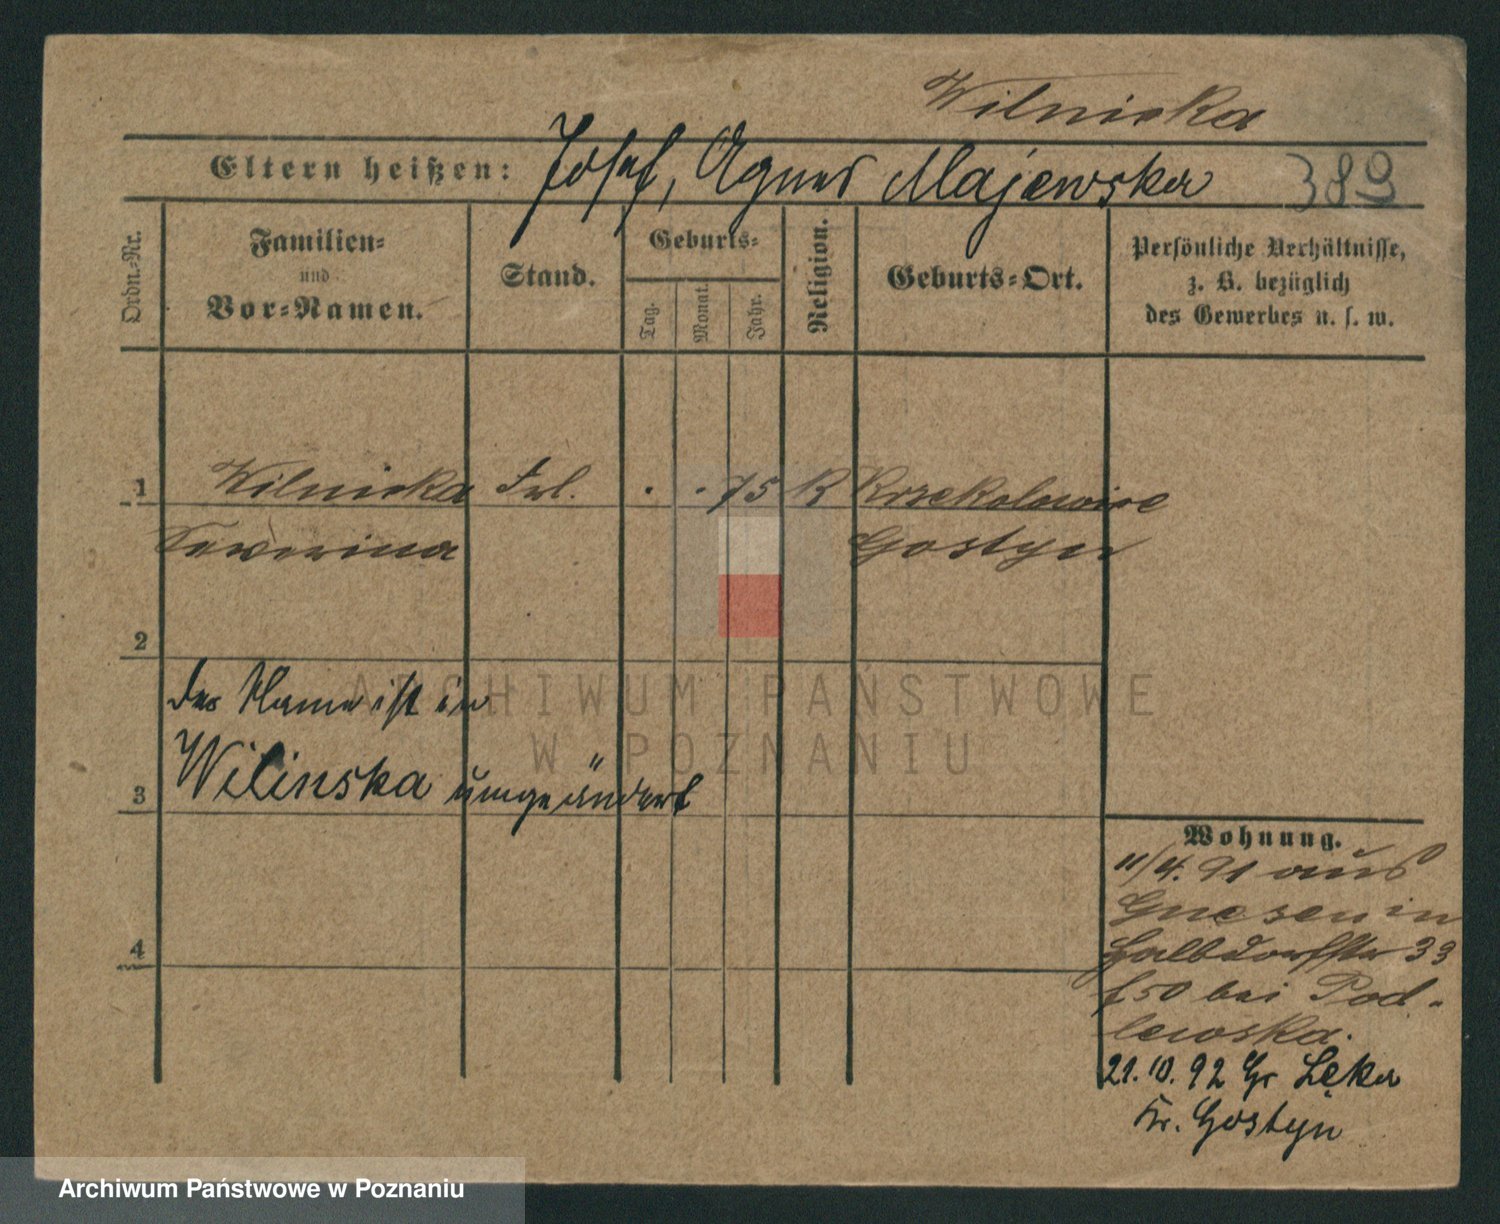 Wilniska
Eltern heißen: Josef, Agnes Majewska 389
Ordn.-Nr.
Familien-
und
Vor-Namen.
Stand.
Geburts-
Tag.
Monat.
Jahr.
Religion.
Geburts-Ort.
Persönliche Verhältnisse,
z. B. bezüglich
des Gewerbes u. s. w.
1 Wilniska Frl. . . 75 K
Sewerina Gostyn
2
der Name ist in
ARCHIWUM PAŃSTWOWE
W POZNANIU
3 Wilinska umgeändert
Wohnung.
11/4. 91 aus
Gnesen in
Halbdorfstr 33
bei Pod-
lewska.
4
21.10.92 Gr Lęka
Kr. Gostyn
Archiwum Państwowe w Poznaniu